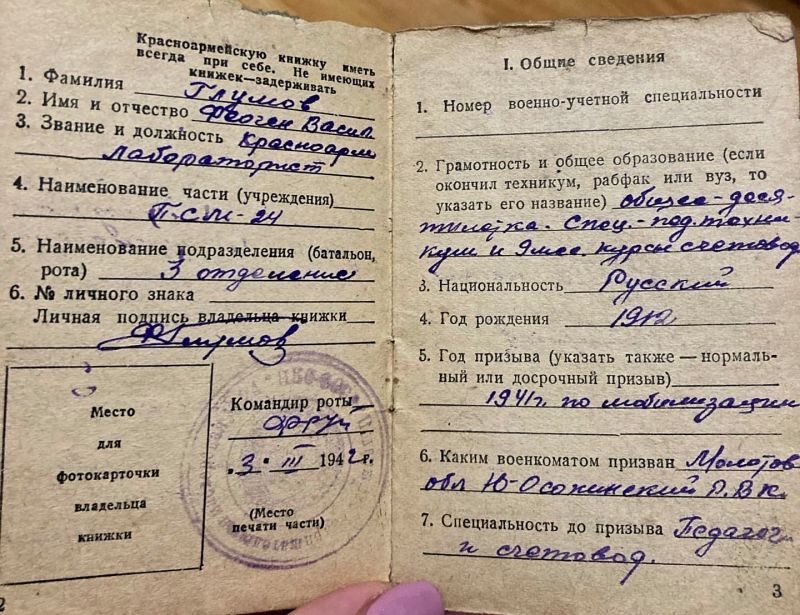 Красноармейскую книжку иметь
всегда при себе. Не имеющих
книжек—задерживать
1. Фамилия Глумов
2. Имя и отчество Феоген Васил
3. Звание и должность Красноарм
Лабораторист
4. Наименование части (учреждения)
ПСМ-24
5. Наименование подразделения (батальон,
рота) 3 отделение
6. № личного знака
Личная подпись владельца книжки
Глумов
Место
для
фотокарточки
владельца
книжки
Командир роты
3. III 1942 г.
(Место
печати части)
2
I. Общие сведения
1. Номер военно-учетной специальности
2. Грамотность и общее образование (если
окончил техникум, рабфак или вуз, то
указать его название) общее-деся-
тилетка. Спец.-пед.техни-
кум и 9мес. курсы счетовод
3. Национальность Русский
4. Год рождения 1912
5. Год призыва (указать также — нормаль-
ный или досрочный призыв)
1941г. по мобилизации
6. Каким военкоматом призван Молотов
обл Ю-Осокинский Р.В.К.
7. Специальность до призыва Педагог
и счетовод.
3